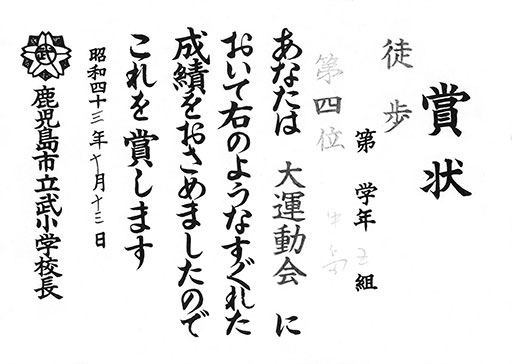 賞状
徒歩
第 学年 組
第四位
あなたは 大運動会 に
おいて右のようなすぐれた
成績をおさめましたので
これを賞します
昭和四十三年十月十三日
武
鹿児島市立武小学校長